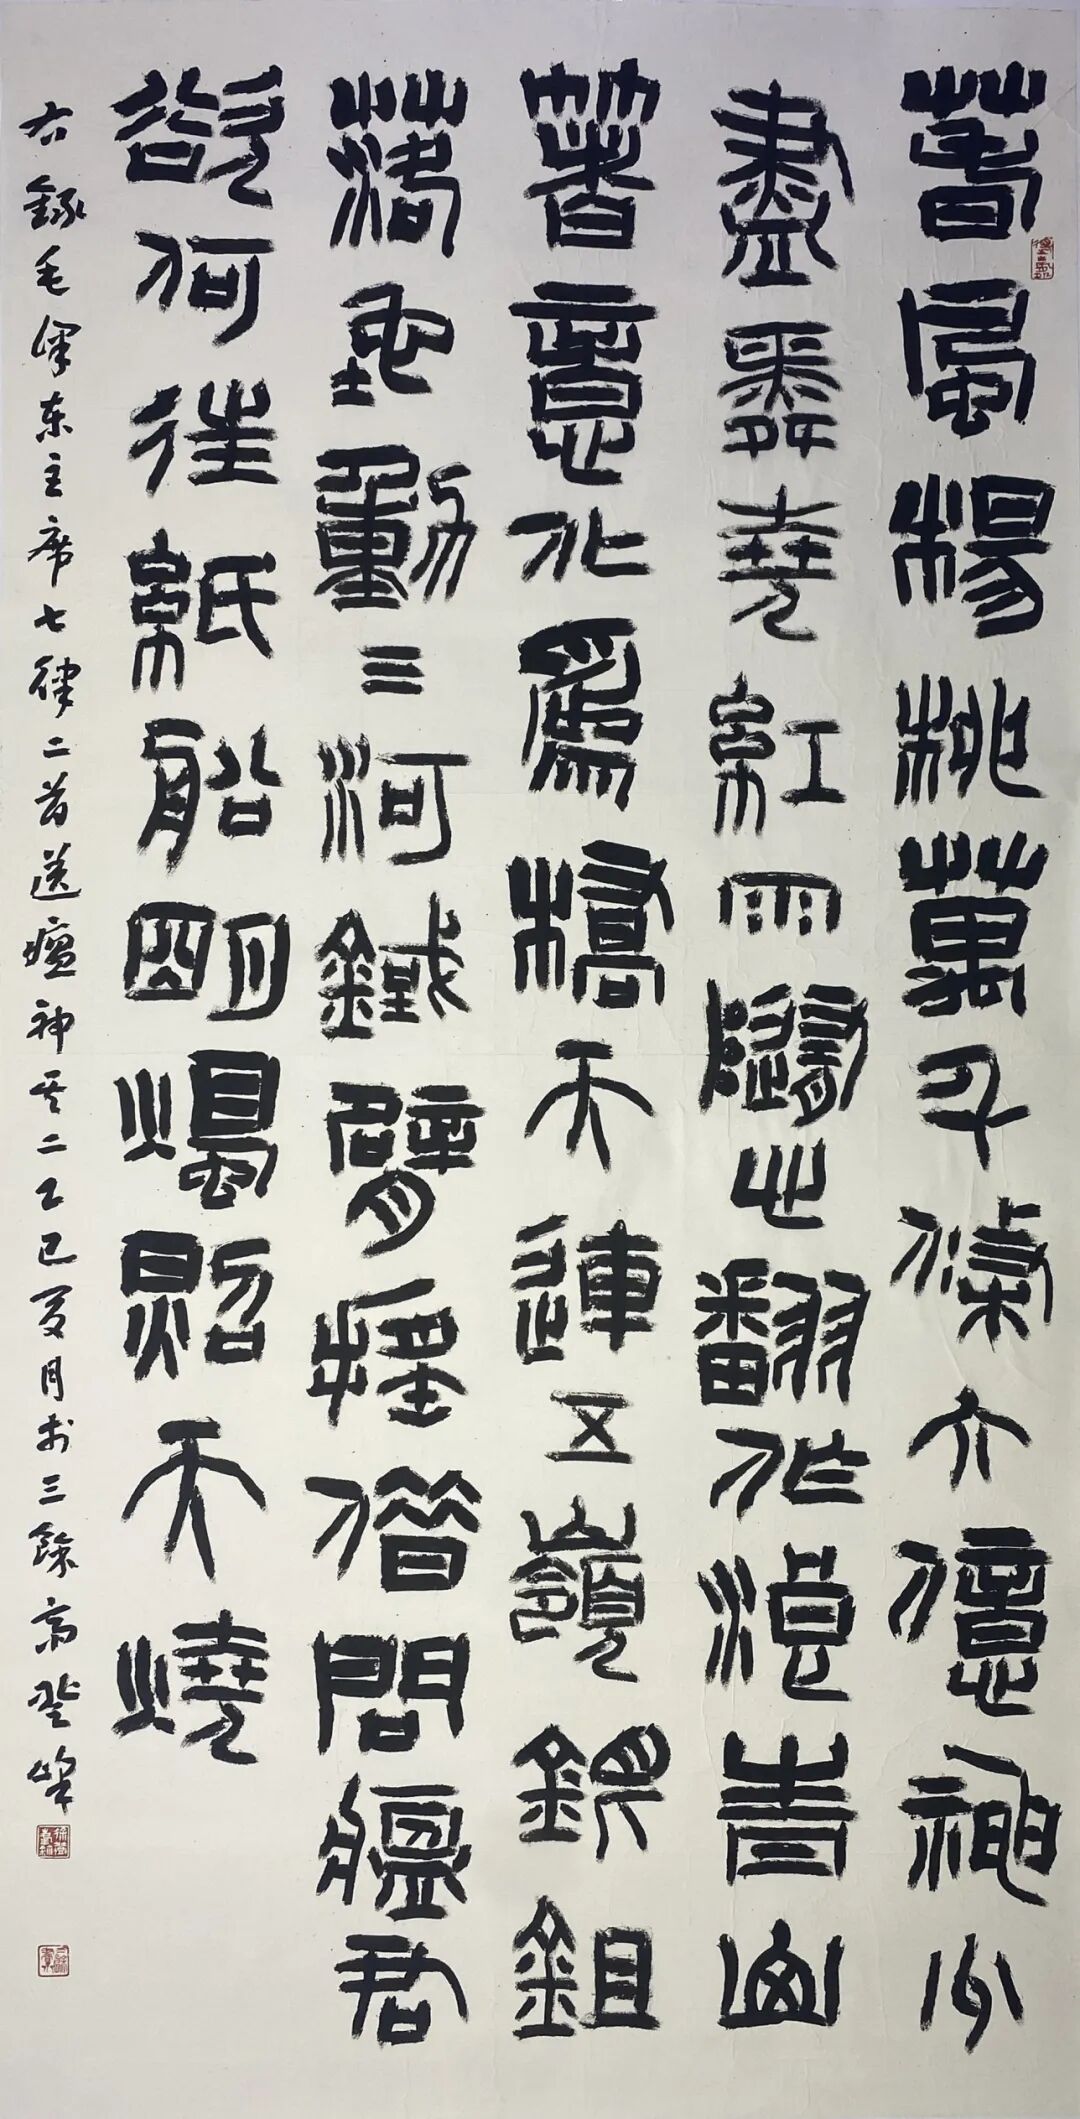 春風楊柳萬千條六億神州
盡舜堯紅雨隨心翻作浪青山
著意化為橋天連五嶺銀鉏
落地動三河鐵臂搖借問瘟君
欲何往紙船明燭照天燒
右錄毛澤東主席七律二首送瘟神其二乙巳夏月於三餘齋峰